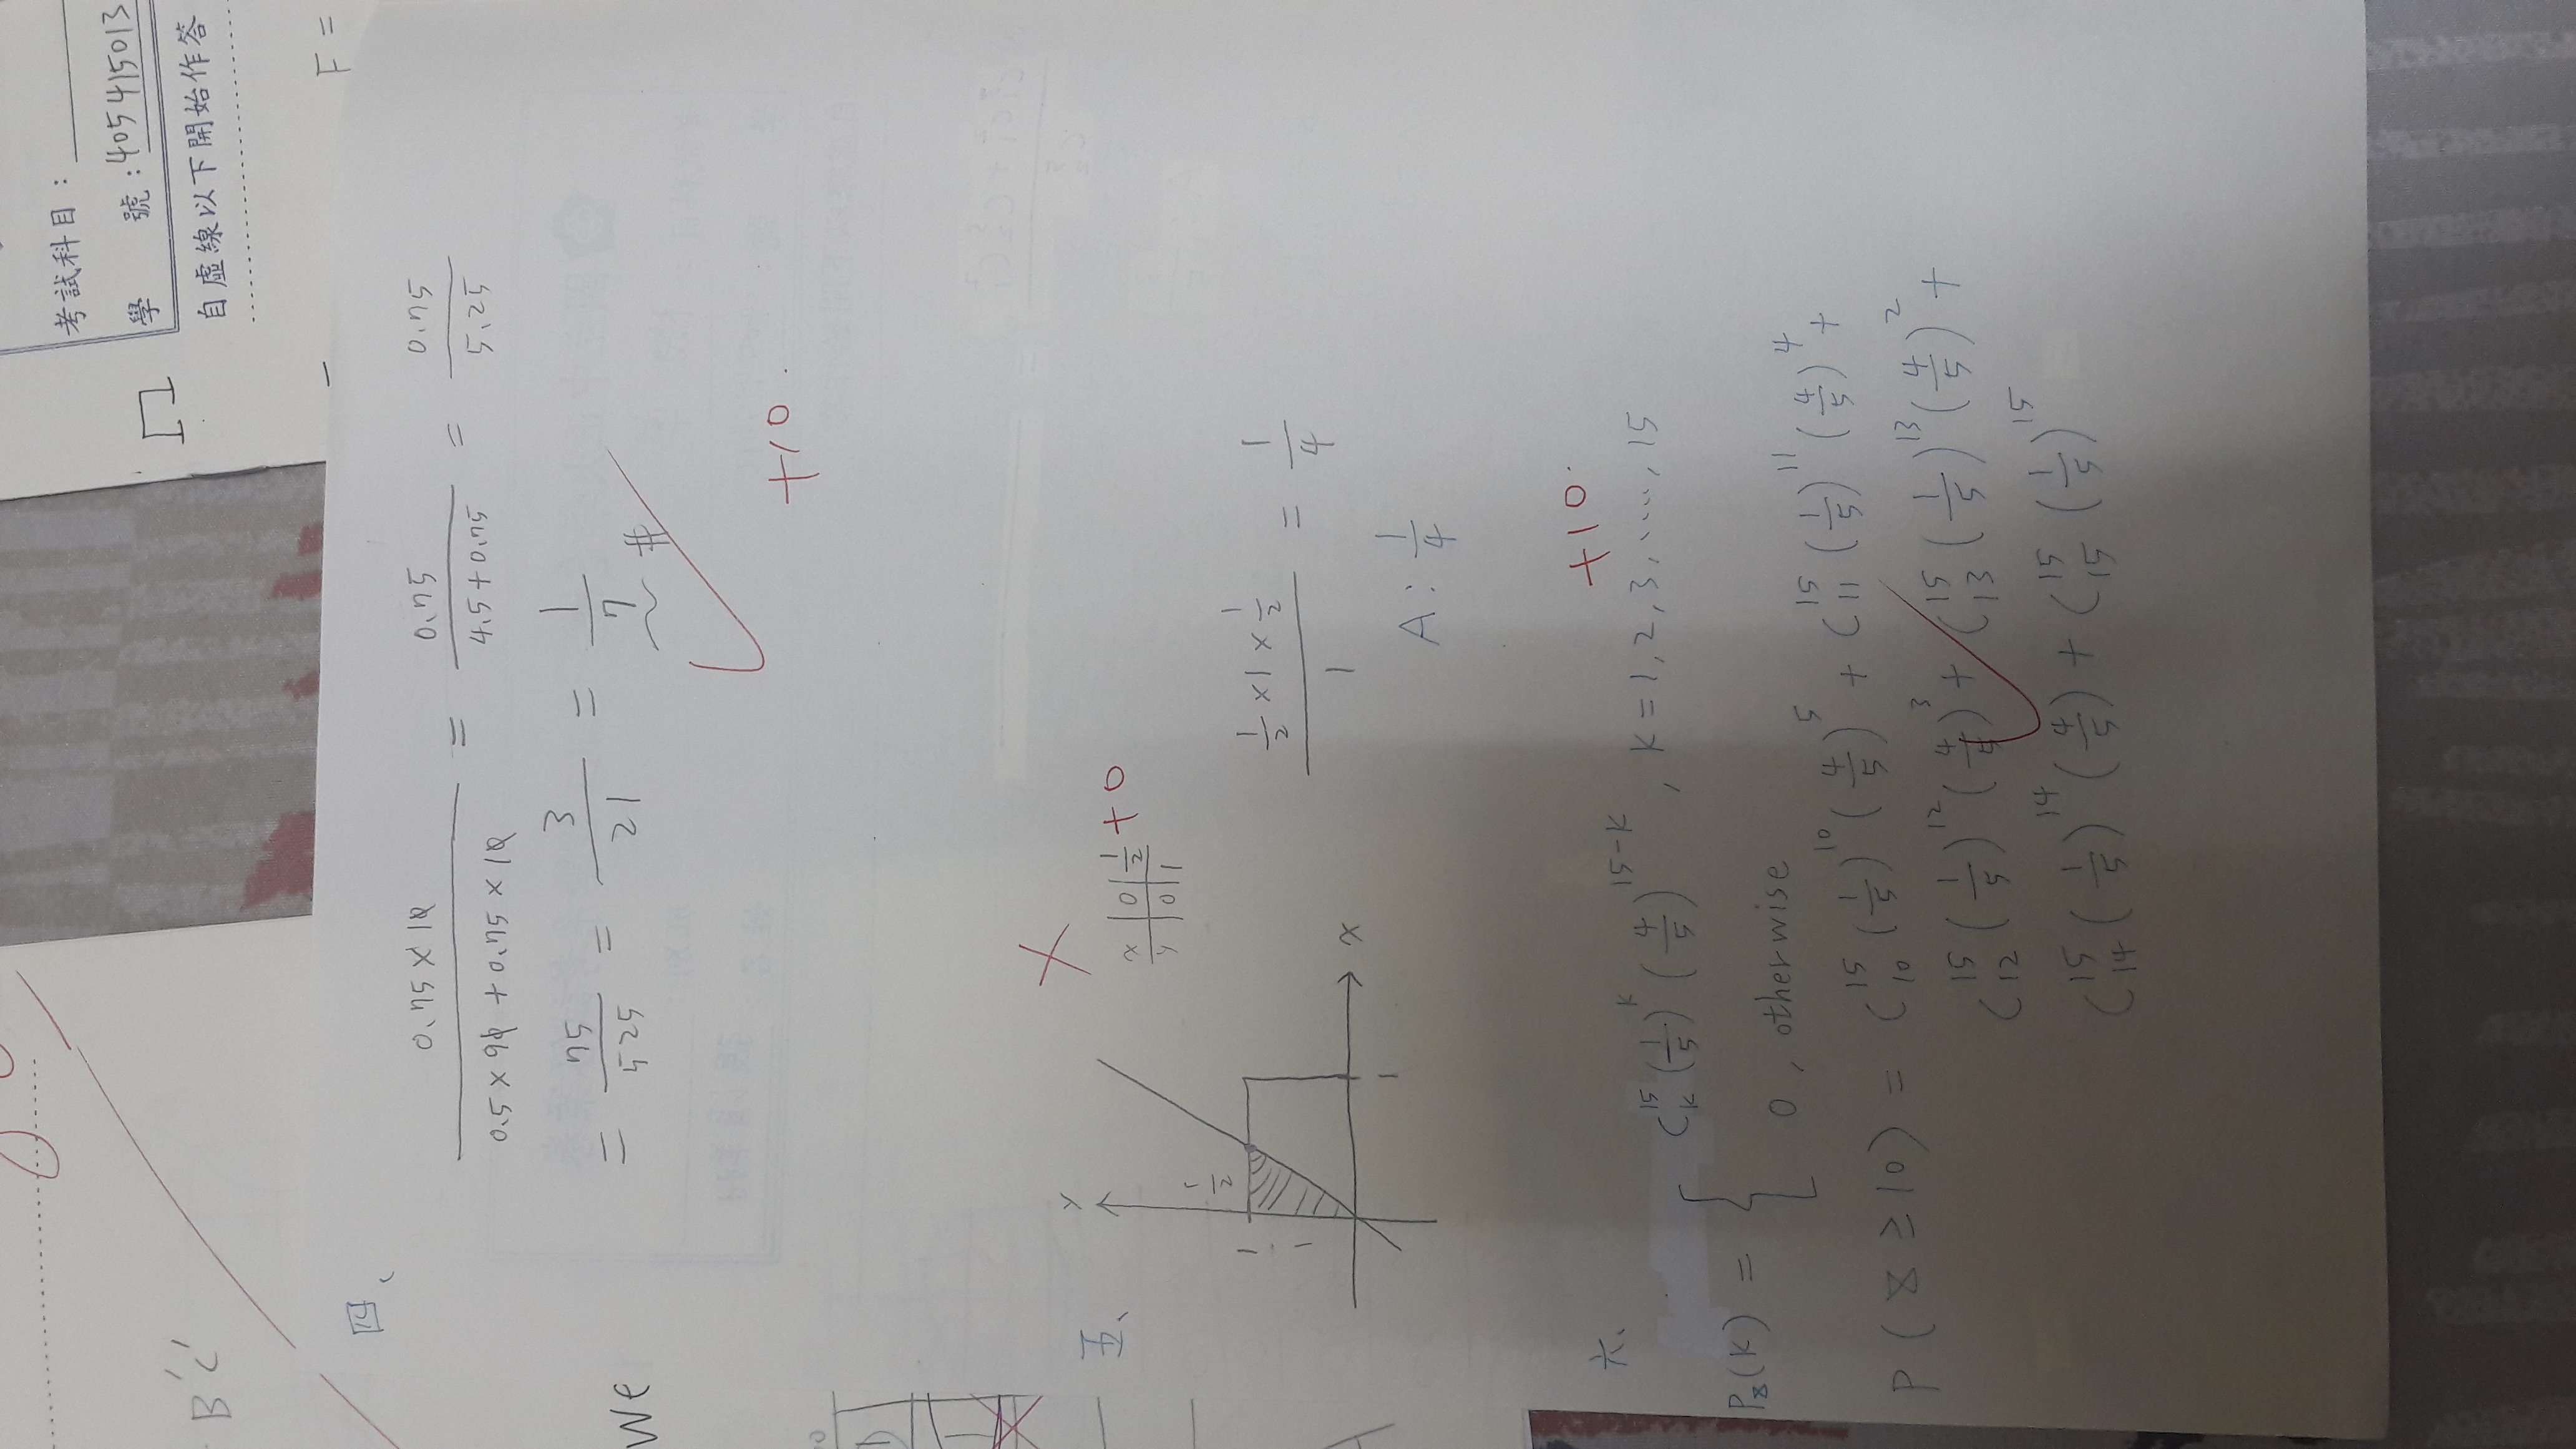 考試科目：
學 號：405415013
自虛線以下開始作答
B'C'
F =
We
四、
0.75 × 10 / (0.5 × 90 + 0.75 × 10) = 0.75 / (4.5 + 0.75) = 0.75 / 5.25
= 75 / 525 = 3 / 21 = 1 / 7 #
+10.
五、
y
x | 0 | 1/2
y | 0 | 1
+0
1/2
1
1
x
1
(1/2 × 1 × 1/2) / 1 = 1/4
A: 1/4
六、
+10.
C^15_K (1/5)^K (4/5)^(15-K), K = 1, 2, 3, ....., 15
P_X(K) = {
0, otherwise
P(X ≥ 10) = C^15_10 (1/5)^10 (4/5)^5 + C^15_11 (1/5)^11 (4/5)^4 +
C^15_12 (1/5)^12 (4/5)^3 + C^15_13 (1/5)^13 (4/5)^2 +
C^15_14 (1/5)^14 (4/5) + C^15_15 (1/5)^15